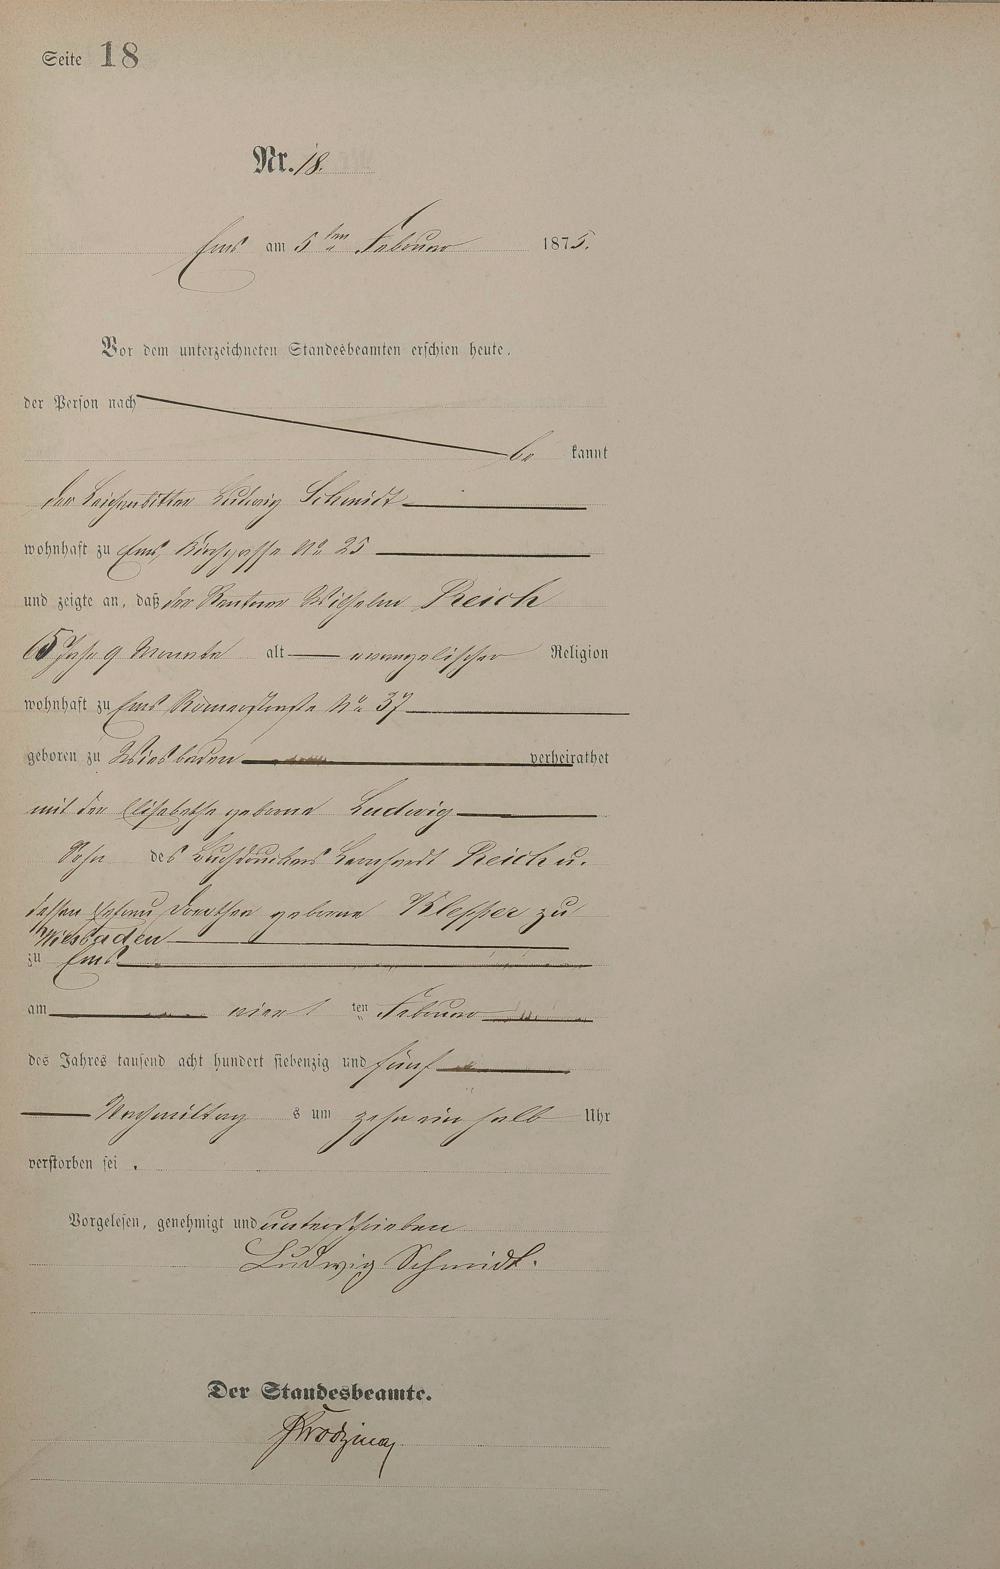 Seite 18
Nr. 18.
Ems am 5 ten Februar 1875.
Vor dem unterzeichneten Standesbeamten erschien heute,
der Person nach
be kannt
der Leichenbitter Ludwig Schmidt
wohnhaft zu Ems, Kirchgasse No 25
und zeigte an, daß der Rentner Wilhelm Reich
Jahr 9 Monate alt evangelischer Religion
wohnhaft zu Ems Römerstraße No 37
geboren zu Wiesbaden verheirathet
mit der Elisabethe geborne Ludwig
Sohn des Buchdruckers Reich u.
dessen Ehefrau Dorothea geborne Klepper zu
Wiesbaden
zu Ems
am vier ten Februar
des Jahres tausend acht hundert siebenzig und fünf
Nachmittag s um zehn ein halb Uhr
verstorben sei .
Vorgelesen, genehmigt und unterschrieben
Ludwig Schmidt.
Der Standesbeamte.